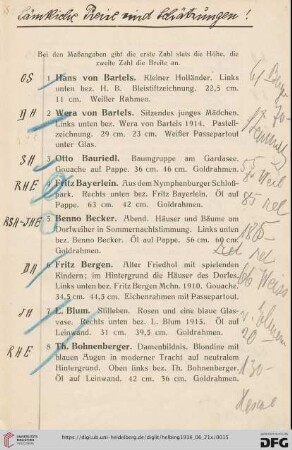 Sämtliche Preise sind Schätzungen!
Bei den Maßangaben gibt die erste Zahl stets die Höhe, die
zweite Zahl die Breite an.
OS 1 Hans von Bartels. Kleiner Holländer. Links
unten bez. H. B. Bleistiftzeichnung. 22,5 cm.
11 cm. Weißer Rahmen.
2 Wera von Bartels. Sitzendes junges Mädchen.
Links unten bez. Wera von Bartels 1914. Pastell-
zeichnung. 29 cm. 23 cm. Weißer Passepartout
unter Glas.
SH 3 Otto Bauriedl. Baumgruppe am Gardasee.
Gouache auf Pappe. 36 cm. 46 cm. Goldrahmen.
RHE 4 Fritz Bayerlein. Aus dem Nymphenburger Schloß-
park. Rechts unten bez. Fritz Bayerlein. Öl auf
Pappe. 63 cm. 42 cm. Goldrahmen.
RSH-JHE 5 Benno Becker. Abend. Häuser und Bäume am
Dorfweiher in Sommernachtstimmung. Links unten
bez. Benno Becker. Öl auf Pappe. 56 cm. 60 cm.
Goldrahmen.
DH 6 Fritz Bergen. Alter Friedhof mit spielenden
Kindern; im Hintergrund die Häuser des Dorfes.
Links unten bez. Fritz Bergen Mchn. 1910. Gouache.
34,5 cm. 44,5 cm. Eichenrahmen mit Passepartout.
JH 7 L. Blum. Stilleben. Rosen und eine blaue Glas-
vase. Rechts unten bez. L. Blum 1915. Öl auf
Leinwand. 31 cm. 39,5 cm. Goldrahmen.
RHE 8 Th. Bohnenberger. Damenbildnis. Blondine mit
blauen Augen in moderner Tracht auf neutralem
Hintergrund. Oben links bez. Th. Bohnenberger.
Öl auf Leinwand. 42 cm. 36 cm. Goldrahmen.
https://digi.ub.uni-heidelberg.de/diglit/helbing1916_06_21a/0015
© Universitätsbibliothek Heidelberg
gefördert durch die
DFG